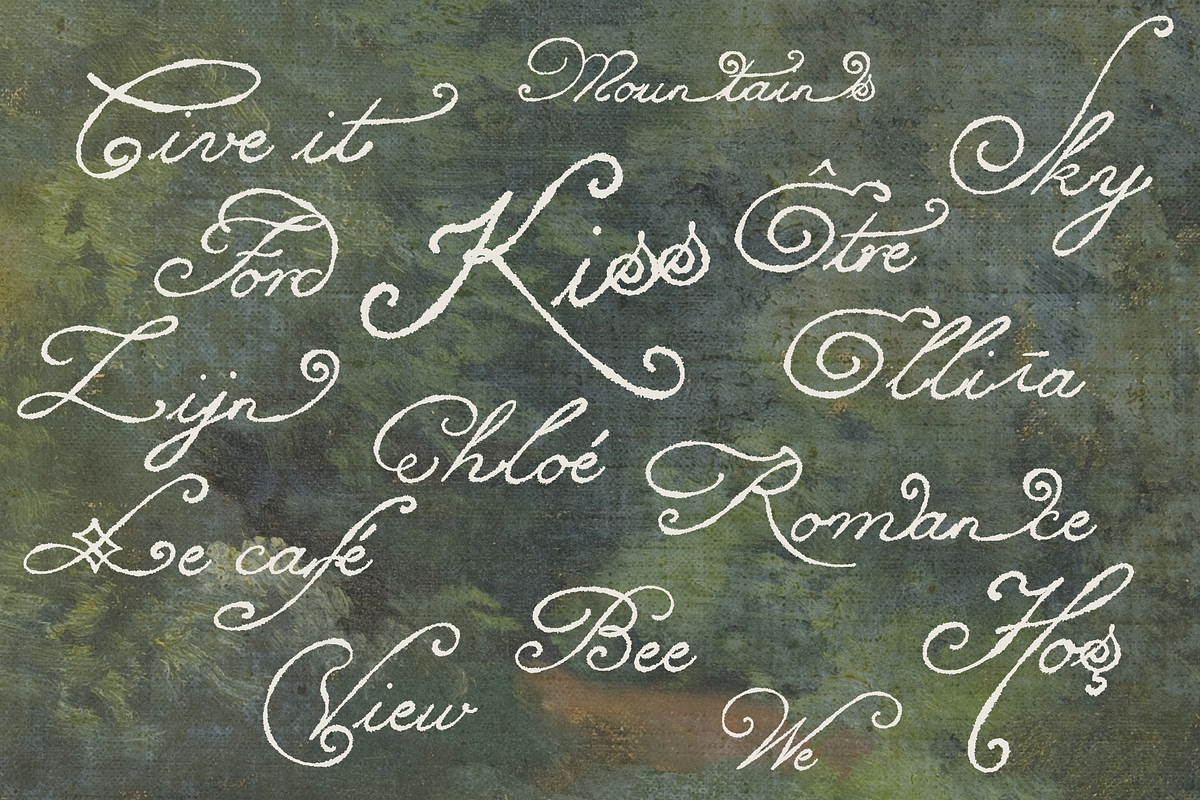 Mountains
it
Sky
Ford
Kiss
Être
Zijn
Elliīa
Chloé
Romance
Le café
Bee
Hoş
View
We